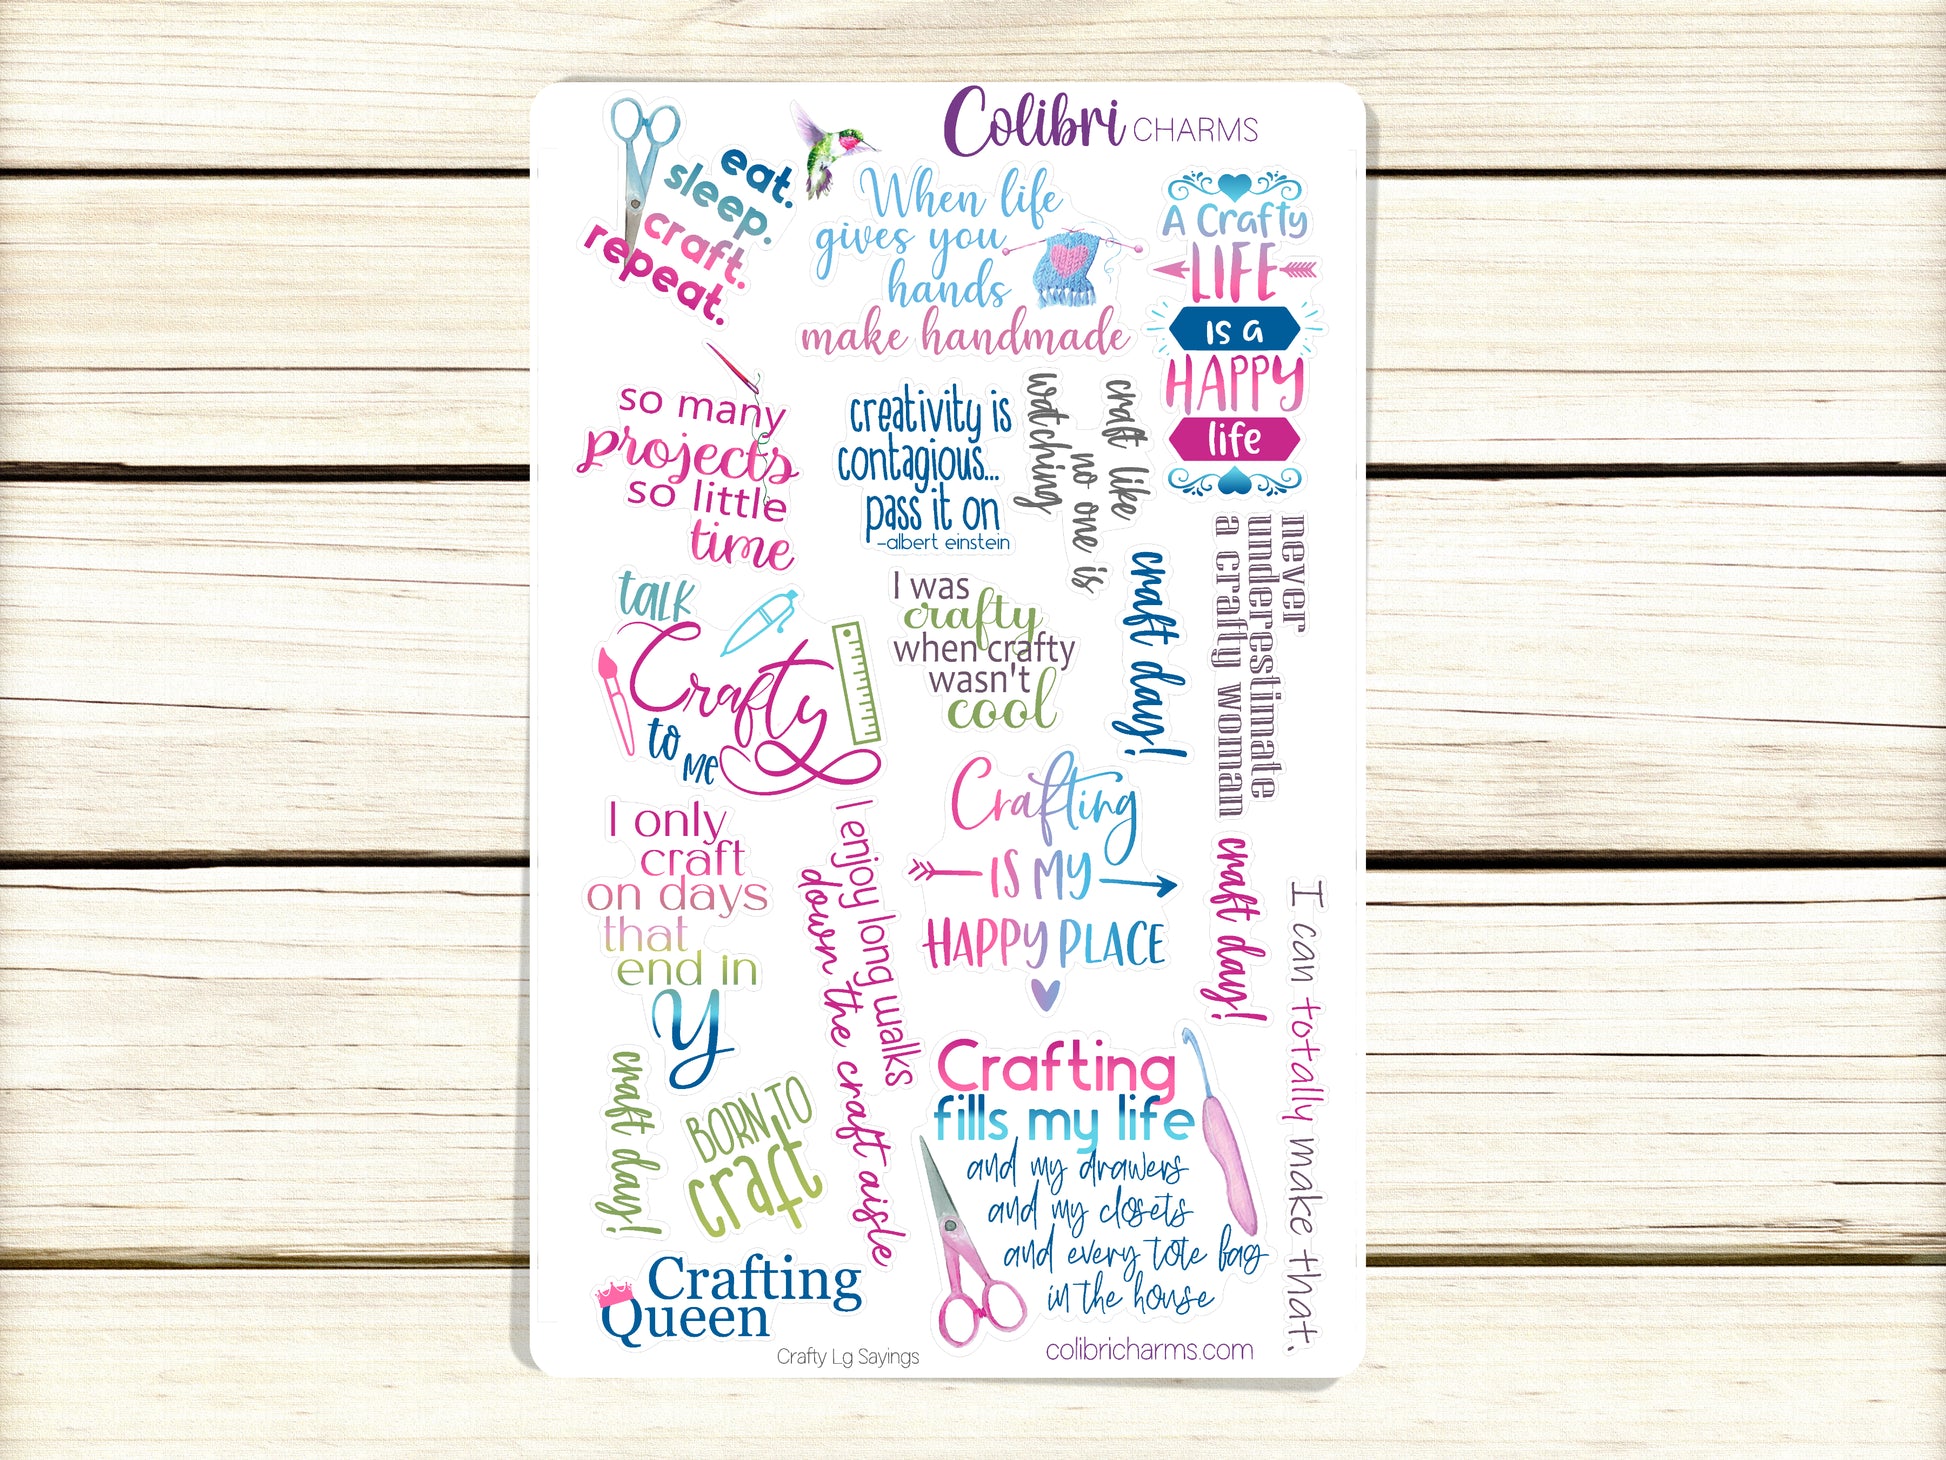 Colibri CHARMS
eat.
sleep.
craft.
repeat.
When life
gives you
hands
make handmade
A Crafty
LIFE
is a
HAPPY
life
so many
projects
so little
time
creativity is
contagious...
pass it on
-albert einstein
craft like
no one is
watching
never
underestimate
a crafty woman
talk
Crafty
to me
I was
crafty
when crafty
wasn't
cool
craft day!
I only
craft
on days
that
end in
y
I enjoy long walks
down the craft aisle
Crafting
IS MY
HAPPY PLACE
craft day!
I can totally make that.
craft day!
BORN TO
craft
Crafting
fills my life
and my drawers
and my closets
and every tote bag
in the house
Crafting
Queen
Crafty Lg Sayings
colibricharms.com